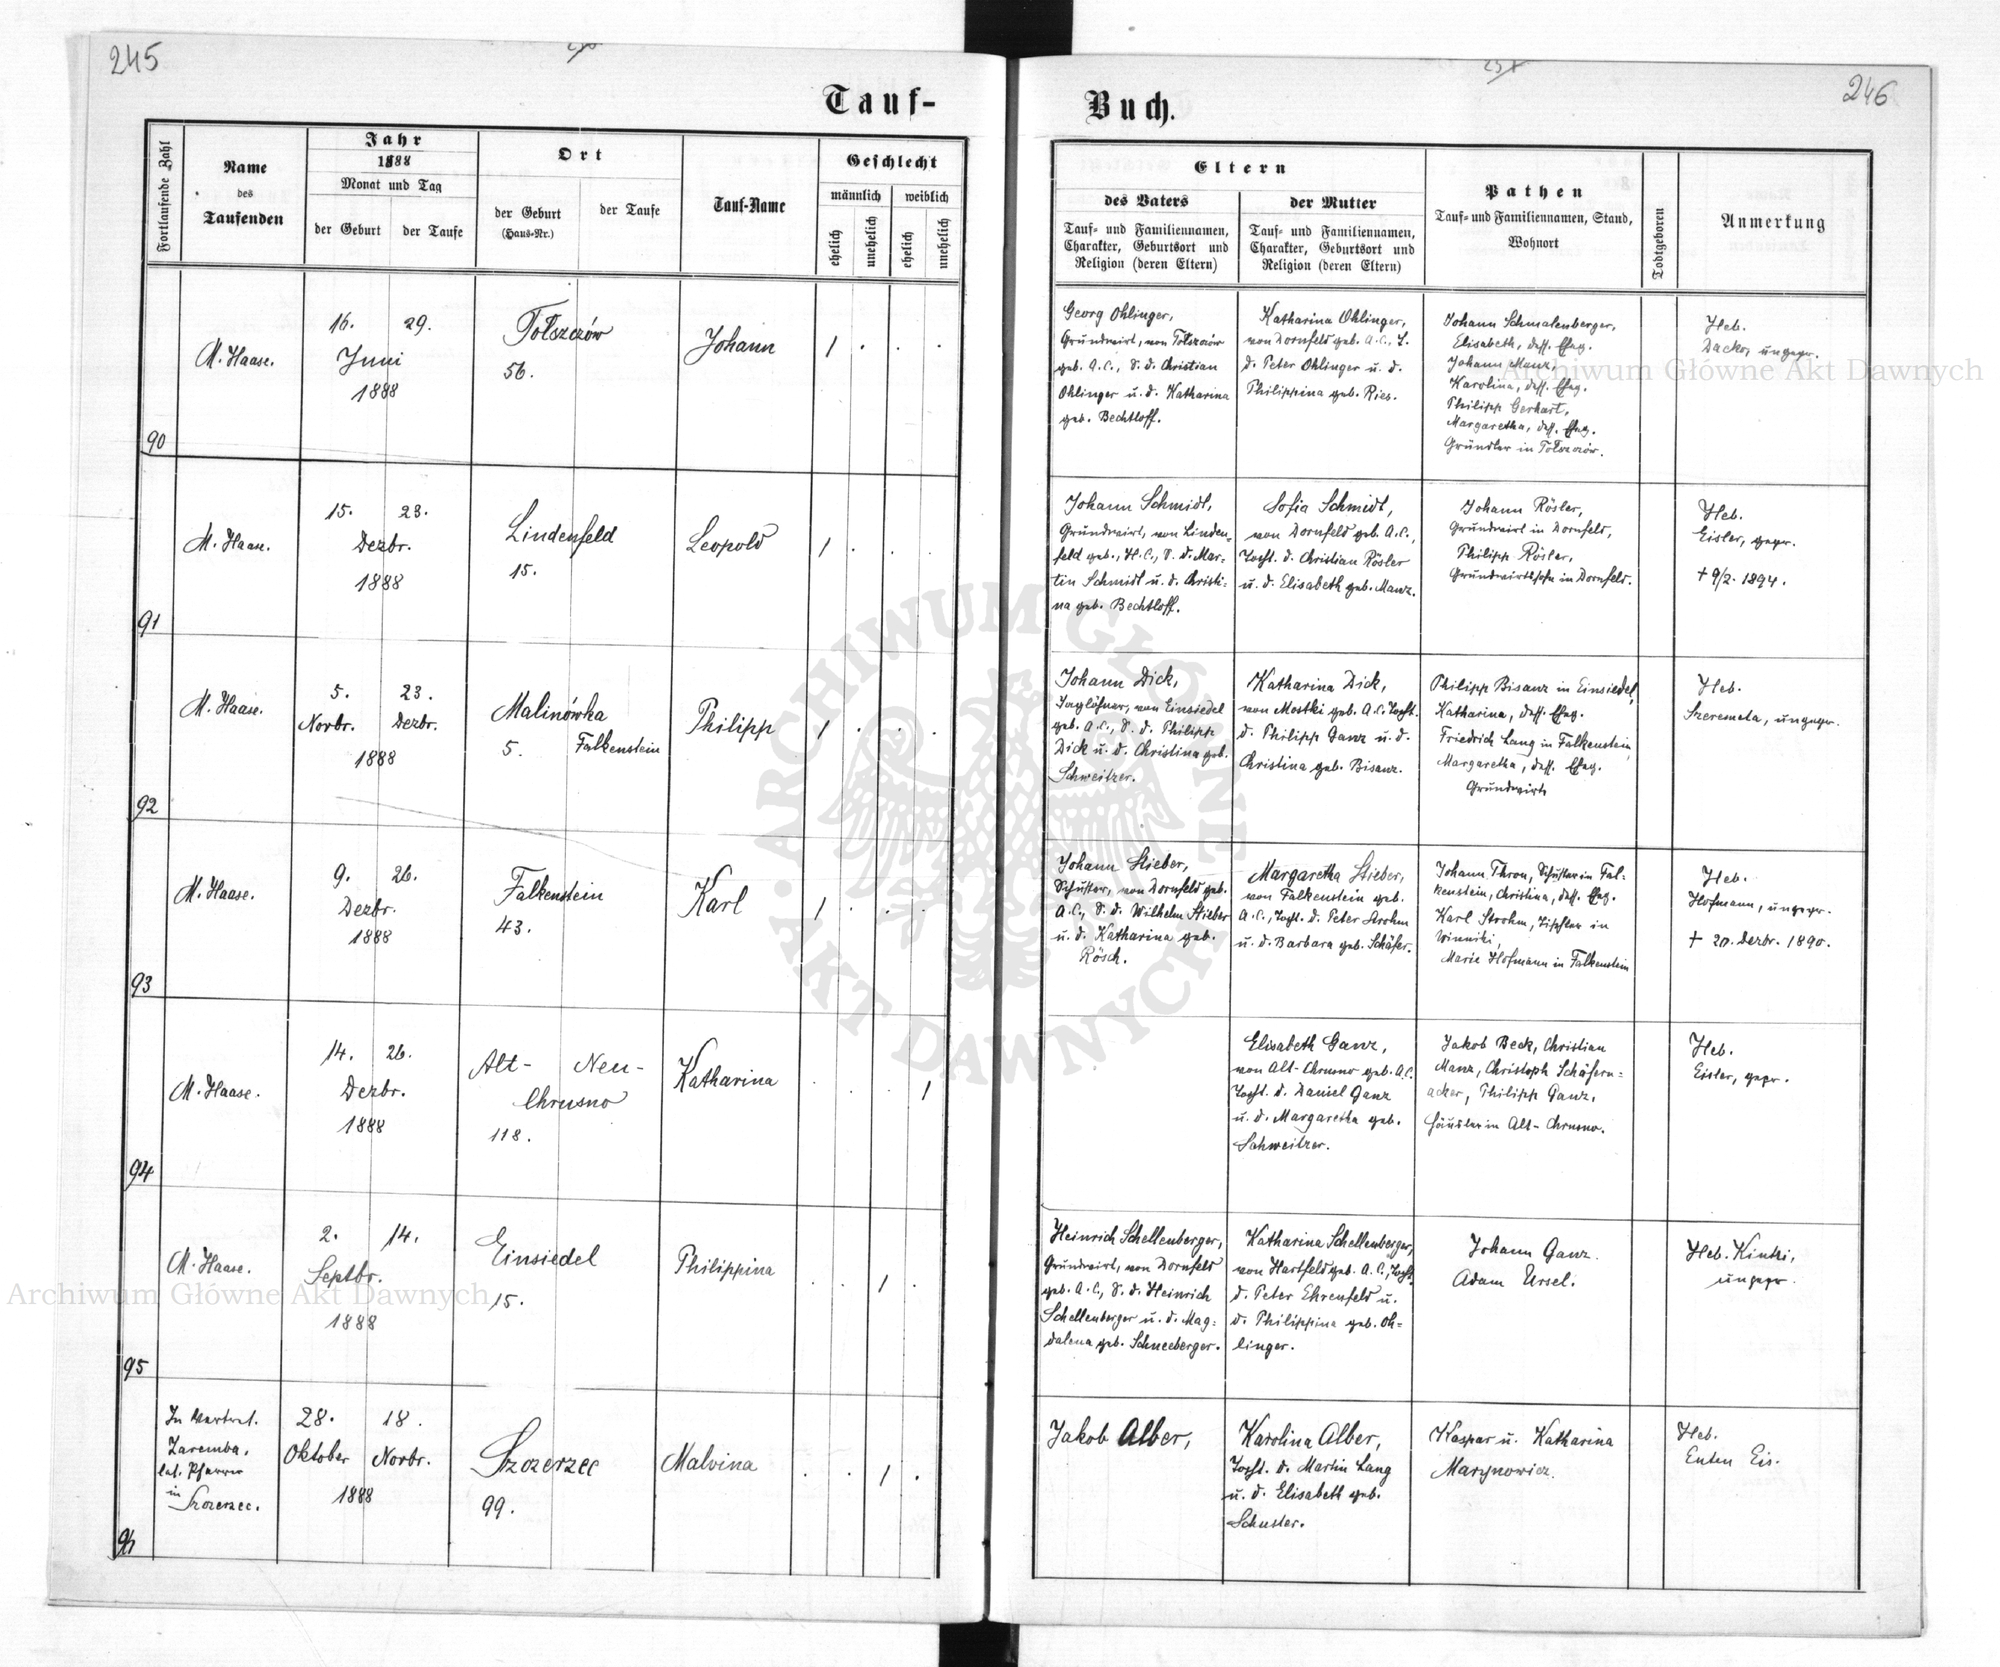 245
246
Tauf-
Buch.
Fortlaufende Zahl
Name
des
Taufenden
Jahr
1888
Monat und Tag
der Geburt
der Taufe
Ort
der Geburt
(Haus-Nr.)
der Taufe
Tauf-Name
Geschlecht
männlich
weiblich
ehelich
unehelich
ehelich
unehelich
Eltern
des Vaters
Tauf- und Familiennamen,
Charakter, Geburtsort und
Religion (deren Eltern)
der Mutter
Tauf- und Familiennamen,
Charakter, Geburtsort und
Religion (deren Eltern)
Pathen
Tauf- und Familiennamen, Stand,
Wohnort
Todtgeboren
Anmerkung
90
M. Haase.
16. 29.
Juni
1888
Tołszczów
56.
Johann
1 . . .
Georg Ohlinger,
Grundwirt, von Tołszczów
geb. A.C., S. d. Christian
Ohlinger u. d. Katharina
geb. Bechtloff.
Katharina Ohlinger,
von Dornfeld geb. A.C., T.
d. Peter Ohlinger u. d.
Philippina geb. Ries.
Johann Schmalenberger,
Elisabeth, dess. Eheg.
Johann Manz,
Karolina, dess. Eheg.
Philipp Gerhart,
Margaretha, dess. Eheg.
Gründler in Tołszczów.
Heb.
Dacko, ungepr.
91
M. Haase.
15. 23.
Dezbr.
1888
Lindenfeld
15.
Leopold
1 . . .
Johann Schmidt,
Grundwirt, von Linden-
feld geb., H.C., S. d. Mar-
tin Schmidt u. d. Christi-
na geb. Bechtloff.
Sofia Schmidt,
von Dornfeld geb. A.C.,
Tocht. d. Christian Rösler
u. d. Elisabeth geb. Manz.
Johann Rösler,
Grundwirt in Dornfeld,
Philipp Rösler,
Grundwirthsohn in Dornfeld.
Heb.
Eisler, gepr.
† 9/2. 1894.
92
M. Haase.
5. 23.
Novbr. Dezbr.
1888
Malinówka
5. Falkenstein
Philipp
1 . . .
Johann Dick,
Taglöhner, von Einsiedel
geb. A.C., S. d. Philipp
Dick u. d. Christina geb.
Schweitzer.
Katharina Dick,
von Mostki geb. A.C. Tocht.
d. Philipp Ganz u. d.
Christina geb. Bisanz.
Philipp Bisanz in Einsiedel,
Katharina, dess. Eheg.
Friedrich Lang in Falkenstein,
Margaretha, dess. Eheg.
Grundwirte
Heb.
Szeremeta, ungepr.
93
M. Haase.
9. 26.
Dezbr.
1888
Falkenstein
43.
Karl
1 . . .
Johann Stieber,
Schuster, von Dornfeld geb.
A.C., S. d. Wilhelm Stieber
u. d. Katharina geb.
Rösch.
Margaretha Stieber,
von Falkenstein geb.
A.C., Tocht. d. Peter Strohm
u. d. Barbara geb. Schäfer.
Johann Thron, Schuster in Fal-
kenstein, Christina, dess. Eheg.
Karl Strohm, Tischler in
Winniki,
Marie Hofmann in Falkenstein
Heb.
Hofmann, ungepr.
† 20. Dezbr. 1890.
94
M. Haase.
14. 26.
Dezbr.
1888
Alt- Neu-
Chrusno
118.
Katharina
. . . 1
Elisabeth Ganz,
von Alt-Chrusno geb. A.C.
Tocht. d. Daniel Ganz
u. d. Margaretha geb.
Schweitzer.
Jakob Beck, Christian
Manz, Christoph Schäfern-
acker, Philipp Ganz,
Häusler in Alt-Chrusno.
Heb.
Eisler, gepr.
95
M. Haase.
2. 14.
Septbr.
1888
Einsiedel
15.
Philippina
. . 1 .
Heinrich Schellenberger,
Grundwirt, von Dornfeld
geb. A.C., S. d. Heinrich
Schellenberger u. d. Mag-
dalena geb. Schneeberger.
Katharina Schellenberger,
von Hartfeld geb. A.C., Tocht.
d. Peter Ehrenfeld u.
d. Philippina geb. Oh-
linger.
Johann Ganz.
Adam Ursel.
Heb. Kintzi,
ungepr.
96
In Vertret.
Zaremba,
lat. Pfarrer
in
Szczerzec.
28. 18.
Oktober Novbr.
1888
Szczerzec
99.
Malvina
. . 1 .
Jakob Alber,
Karolina Alber,
Tocht. d. Martin Lang
u. d. Elisabeth geb.
Schuster.
Kaspar u. Katharina
Marynowicz.
Heb.
Enten Eis.
Archiwum Główne Akt Dawnych
Archiwum Główne Akt Dawnych
ARCHIWUM GŁÓWNE AKT DAWNYCH